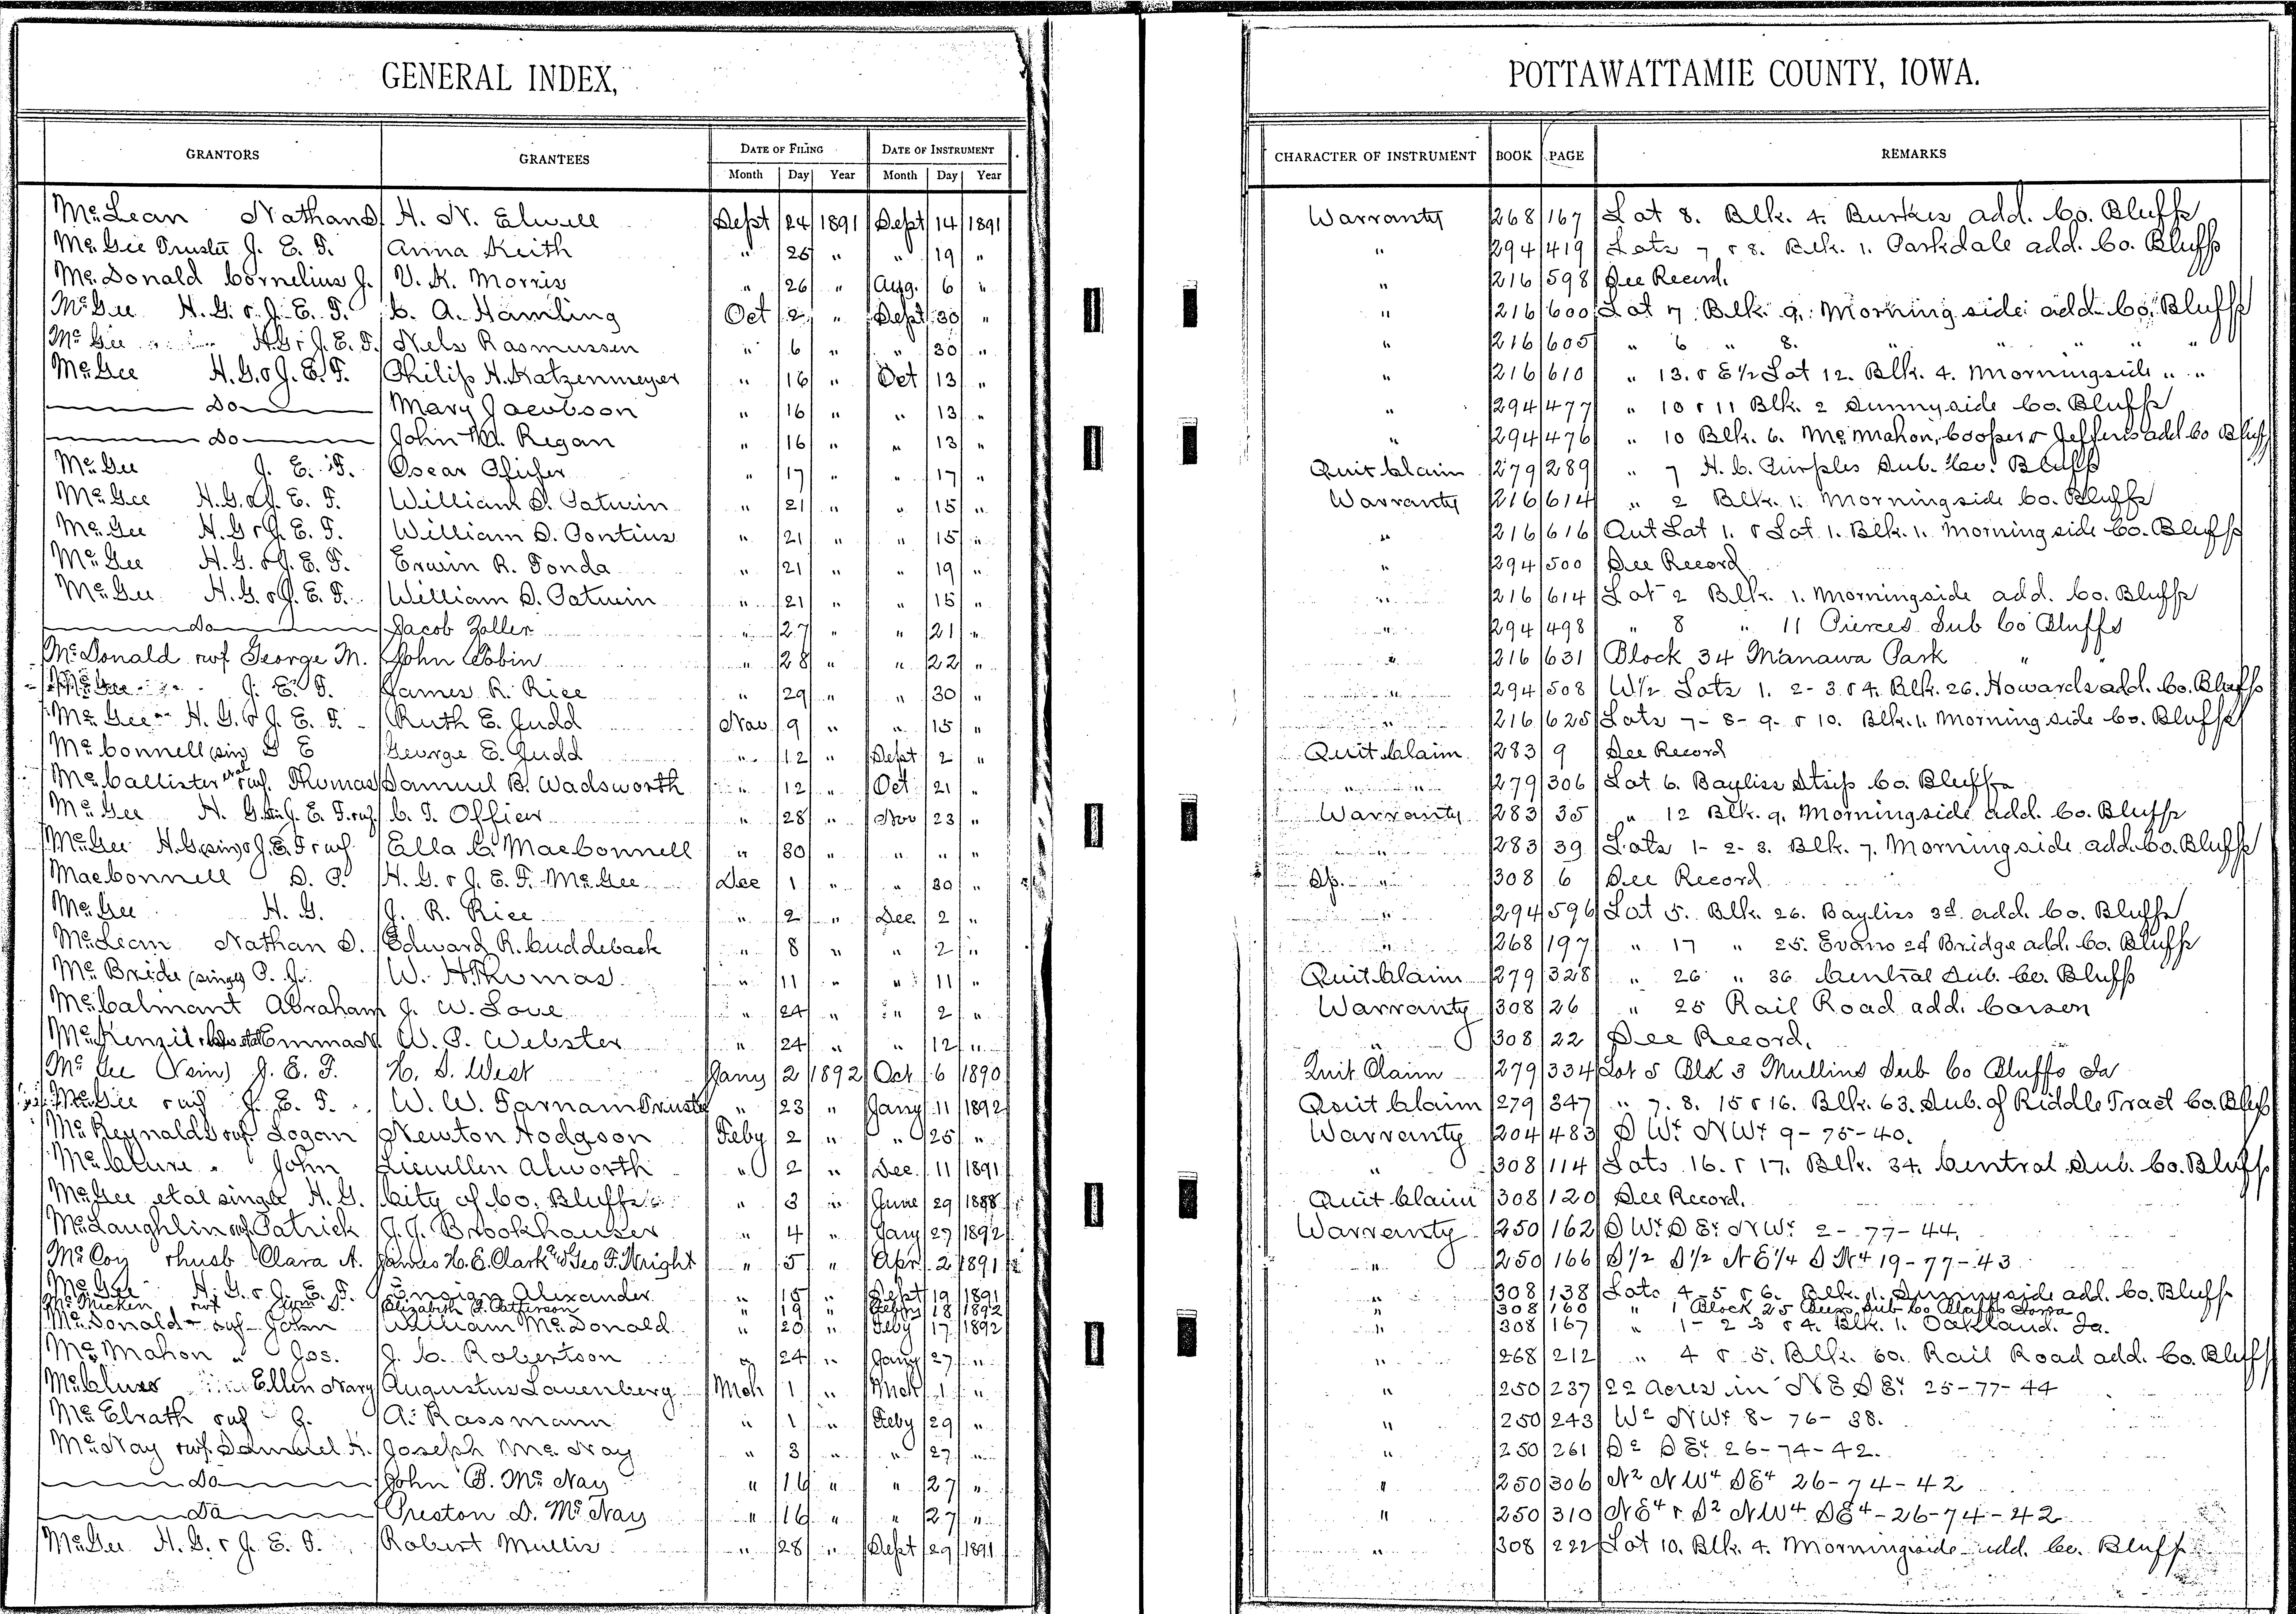 GENERAL INDEX,
POTTAWATTAMIE COUNTY, IOWA.
GRANTORS GRANTEES DATE OF FILING DATE OF INSTRUMENT CHARACTER OF INSTRUMENT BOOK PAGE REMARKS
Month Day Year Month Day Year
McLean Nathan D H. N. Elwell Sept 24 1891 Sept 14 1891 Warranty 268 167 Lot 8. Blk. 4. Burkes add. Co. Bluffs
McGee Trustee J. E. F. Anna Keith " 25 " " 19 " " 294 419 Lots 7 & 8. Blk. 1. Parkdale add. Co. Bluffs
McDonald Cornelius J. V. K. Morris " 26 " Aug. 6 " " 216 598 See Record.
McGee H. G. & J. E. F. C. A. Hamling Oct 2 " Sept 30 " " 216 600 Lot 7. Blk. 9. Morning side add. Co. Bluffs
McGee H. G. & J. E. F. Nels Rasmussen " 6 " " 30 " " 216 605 " 6 " 8. " " " "
McGee H. G. & J. E. F. Philip H. Katzenmeyer " 16 " Oct 13 " " 216 610 " 13. & E 1/2 Lot 12. Blk. 4. Morningside " "
Do Mary Jacobson " 16 " " 13 " " 294 477 " 10 & 11 Blk. 2 Sunnyside Co. Bluffs
Do John M. Regan " 16 " " 13 " " 294 476 " 10 Blk. 6. McMahon, Cooper & Jefferis add Co Bluffs
McGee J. E. F. Oscar Pfeifer " 17 " " 17 " Quit Claim 279 289 " 7 H. C. Purples Sub. Co. Bluffs
McGee H. G. & J. E. F. William D. Patwin " 21 " " 15 " Warranty 216 614 " 2 Blk. 1. Morningside Co. Bluffs
McGee H. G. & J. E. F. William D. Pontius " 21 " " 15 " " 216 616 Out Lot 1. & Lot 1. Blk. 1. Morning side Co. Bluffs
McGee H. G. & J. E. F. Erwin R. Fonda " 21 " " 19 " " 294 500 See Record
McGee H. G. & J. E. F. William D. Patwin " 21 " " 15 " " 216 614 Lot 2 Blk. 1. Morningside add. Co. Bluffs
Do Jacob Zoller " 27 " " 21 " " 294 498 " 8 " 11 Pierces Sub Co Bluffs
McDonald & wf George M. John Tobin " 28 " " 22 " " 216 631 Block 34 Manawa Park " "
McGee J. E. F. James R. Rice " 29 " " 30 " " 294 508 W 1/2 Lots 1. 2- 3 & 4. Blk. 26. Howards add. Co. Bluffs
McGee H. G. & J. E. F. Ruth E. Judd Nov 9 " " 15 " " 216 625 Lots 7- 8- 9. & 10. Blk. 1. Morning side Co. Bluffs
McConnell (sin) S E George E. Judd " 12 " Sept 2 " Quit Claim 283 9 See Record
McCallister & wf. Thomas Samuel B. Wadsworth " 12 " Oct 21 " " 279 306 Lot 6. Bayliss Strip Co. Bluffs
McGee H. G. sin J. E. F. & wf. C. T. Officer " 28 " Nov 23 " Warranty 283 35 " 12 Blk. 9. Morningside add. Co. Bluffs
McGee H. G. (sin) & J. E. F & wf Ella C. MacConnell " 30 " " " " " 283 39 Lots 1- 2- 3. Blk. 7. Morning side add. Co. Bluffs
MacConnell D. P. H. G. & J. E. F. McGee Dec 1 " " 30 " Sp. " 308 6 See Record
McGee H. G. J. R. Rice " 2 " Dec. 2 " " 294 596 Lot 5. Blk. 26. Bayliss 3d add. Co. Bluffs
McLean Nathan D. Edward R. Cuddeback " 8 " " 2 " " 268 197 " 17 " 25. Evans 2d Bridge add. Co. Bluffs
McBride (single) P. J. W. H. Thomas " 11 " " 11 " Quit Claim 279 328 " 26 " 36 Central Sub. Co. Bluffs
McCalmant Abraham J. W. Love " 24 " " 2 " Warranty 308 26 " 25 Rail Road add. Carson
McKenzie Emma W. P. Webster " 24 " " 12 " " 308 22 See Record.
McGee (sin) J. E. F. H. S. West Jany 2 1892 Oct 6 1890 Quit Claim 279 334 Lot 5 Blk 3 Mullins Sub Co Bluffs Ia
McGee & wf J. E. F. W. W. Farnam Trustee " 23 " Jany 11 1892 Quit Claim 279 347 " 7. 8. 15 & 16. Blk. 63. Sub. of Riddle Tract Co. Bluffs
McReynolds & wf Logan Newton Hodgson Feby 2 " " 25 " Warranty 204 483 S W4 N W4 9- 75- 40.
McClure " John Liewellen Alworth " 2 " Dec. 11 1891 " 308 114 Lots 16. & 17. Blk. 34. Central Sub. Co. Bluffs
McGee et al single H. G. City of Co. Bluffs " 3 " June 29 1888 Quit Claim 308 120 See Record.
McLaughlin & wf Patrick J. J. Brookhauser " 4 " Jany 27 1892 Warranty 250 162 S W4 S E4 N W4 2- 77- 44.
McCoy & husb Clara A. James H. E. Clark & Geo F. Wright " 5 " Apr 2 1891 " 250 166 S 1/2 S 1/2 N E 1/4 S W4 19- 77- 43
McGee H. G. & J. E. F. Ensign Alexander " 15 " Sept 19 1891 " 308 138 Lots 4- 5 & 6. Blk. 1. Sunnyside add. Co. Bluffs
McMicken & wf Elizabeth J. Patterson " 19 " Feby 18 1892 " 308 160 " 1 Block 25 Beers Sub Co Bluffs Iowa
McDonald & wf John William McDonald " 20 " Feby 17 1892 " 308 167 " 1- 2 3 & 4. Blk. 1. Oakland. Ia.
McMahon " Jos. J. C. Robertson " 24 " Jany 27 " " 268 212 " 4 & 5. Blk. 60. Rail Road add. Co. Bluffs
McClure Ellen Mary Augustus Lauenberg Mch 1 " Mch 1 " " 250 237 22 Acres in N E S E4 25- 77- 44
McElrath & wf G. A. Rassmann " 1 " Feby 29 " " 250 243 W2 N W4 8- 76- 38.
McNay & wf. Samuel H. Joseph McNay " 3 " " 27 " " 250 261 S2 S E4 26- 74- 42.
Do John P. McNay " 16 " " 27 " " 250 306 N2 N W4 S E4 26- 74- 42
Do Preston D. McNay " 16 " " 27 " " 250 310 N E4 & S2 N W4 S E4 - 26- 74- 42
McGee H. G. & J. E. F. Robert Mullis " 28 " Sept 29 1891 " 308 222 Lot 10. Blk. 4. Morningside add. Co. Bluffs